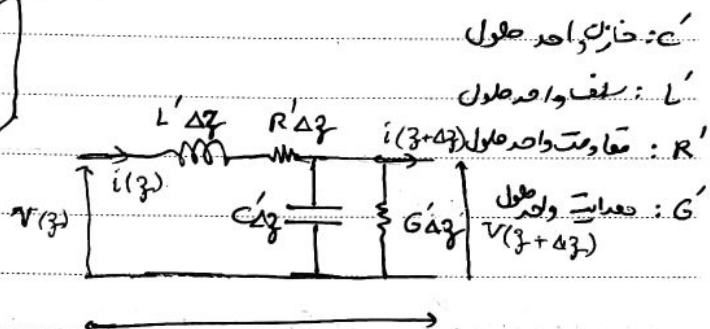 C′: خازن واحد طول
L′: سلف واحد طول
R′: مقاومت واحد طول
G′: هدایت واحد طول
L′Δz R′Δz i(z+Δz)
i(z)
V(z) C′Δz G′Δz V(z+Δz)